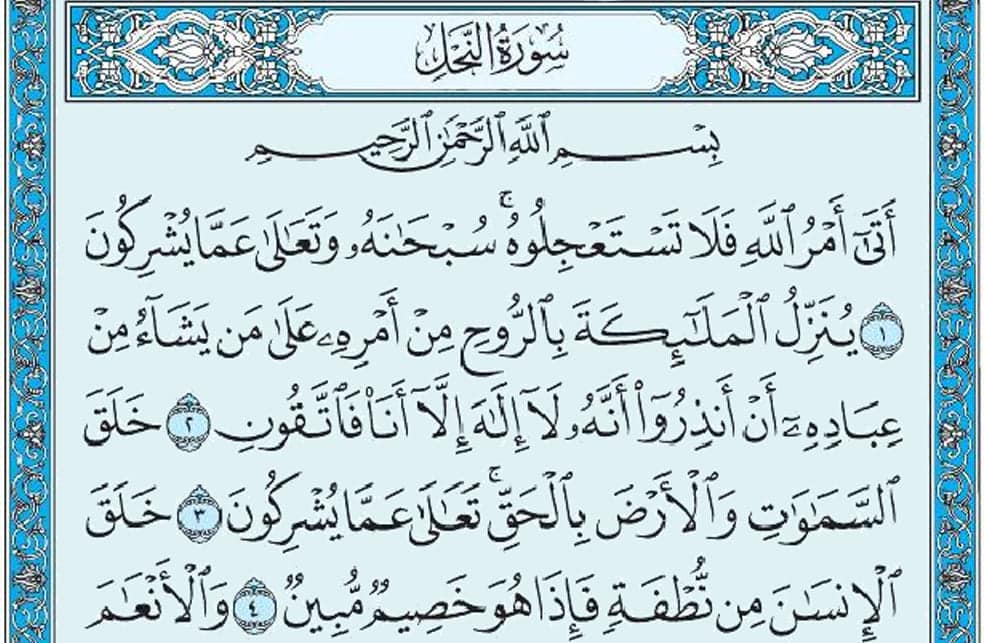 سُورَةُ النَّحْلِ
بِسْمِ ٱللَّهِ ٱلرَّحْمَٰنِ ٱلرَّحِيمِ
أَتَىٰٓ أَمْرُ ٱللَّهِ فَلَا تَسْتَعْجِلُوهُۚ سُبْحَٰنَهُۥ وَتَعَٰلَىٰ عَمَّا يُشْرِكُونَ
١ يُنَزِّلُ ٱلْمَلَٰٓئِكَةَ بِٱلرُّوحِ مِنْ أَمْرِهِۦ عَلَىٰ مَن يَشَآءُ مِنْ
عِبَادِهِۦٓ أَنْ أَنذِرُوٓا۟ أَنَّهُۥ لَآ إِلَٰهَ إِلَّآ أَنَا۠ فَٱتَّقُونِ ٢ خَلَقَ
ٱلسَّمَٰوَٰتِ وَٱلْأَرْضَ بِٱلْحَقِّۚ تَعَٰلَىٰ عَمَّا يُشْرِكُونَ ٣ خَلَقَ
ٱلْإِنسَٰنَ مِن نُّطْفَةٍ فَإِذَا هُوَ خَصِيمٌ مُّبِينٌ ٤ وَٱلْأَنْعَٰمَ